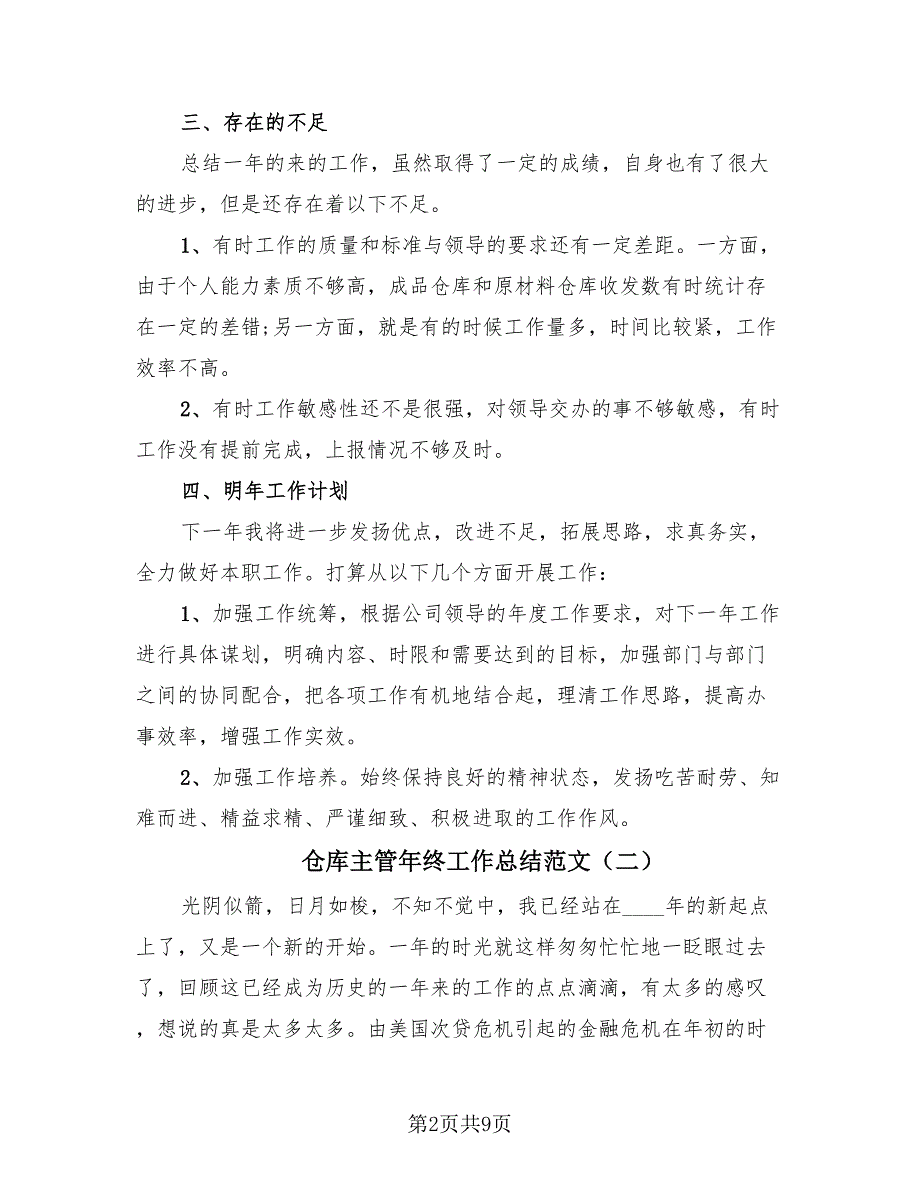 三、存在的不足
总结一年的来的工作，虽然取得了一定的成绩，自身也有了很大
的进步，但是还存在着以下不足。
1、有时工作的质量和标准与领导的要求还有一定差距。一方面，
由于个人能力素质不够高，成品仓库和原材料仓库收发数有时统计存
在一定的差错;另一方面，就是有的时候工作量多，时间比较紧，工作
效率不高。
2、有时工作敏感性还不是很强，对领导交办的事不够敏感，有时
工作没有提前完成，上报情况不够及时。
四、明年工作计划
下一年我将进一步发扬优点，改进不足，拓展思路，求真务实，
全力做好本职工作。打算从以下几个方面开展工作：
1、加强工作统筹，根据公司领导的年度工作要求，对下一年工作
进行具体谋划，明确内容、时限和需要达到的目标，加强部门与部门
之间的协同配合，把各项工作有机地结合起，理清工作思路，提高办
事效率，增强工作实效。
2、加强工作培养。始终保持良好的精神状态，发扬吃苦耐劳、知
难而进、精益求精、严谨细致、积极进取的工作作风。
仓库主管年终工作总结范文（二）
光阴似箭，日月如梭，不知不觉中，我已经站在____年的新起点
上了，又是一个新的开始。一年的时光就这样匆匆忙忙地一眨眼过去
了，回顾这已经成为历史的一年来的工作的点点滴滴，有太多的感叹
，想说的真是太多太多。由美国次贷危机引起的金融危机在年初的时
第2页共9页